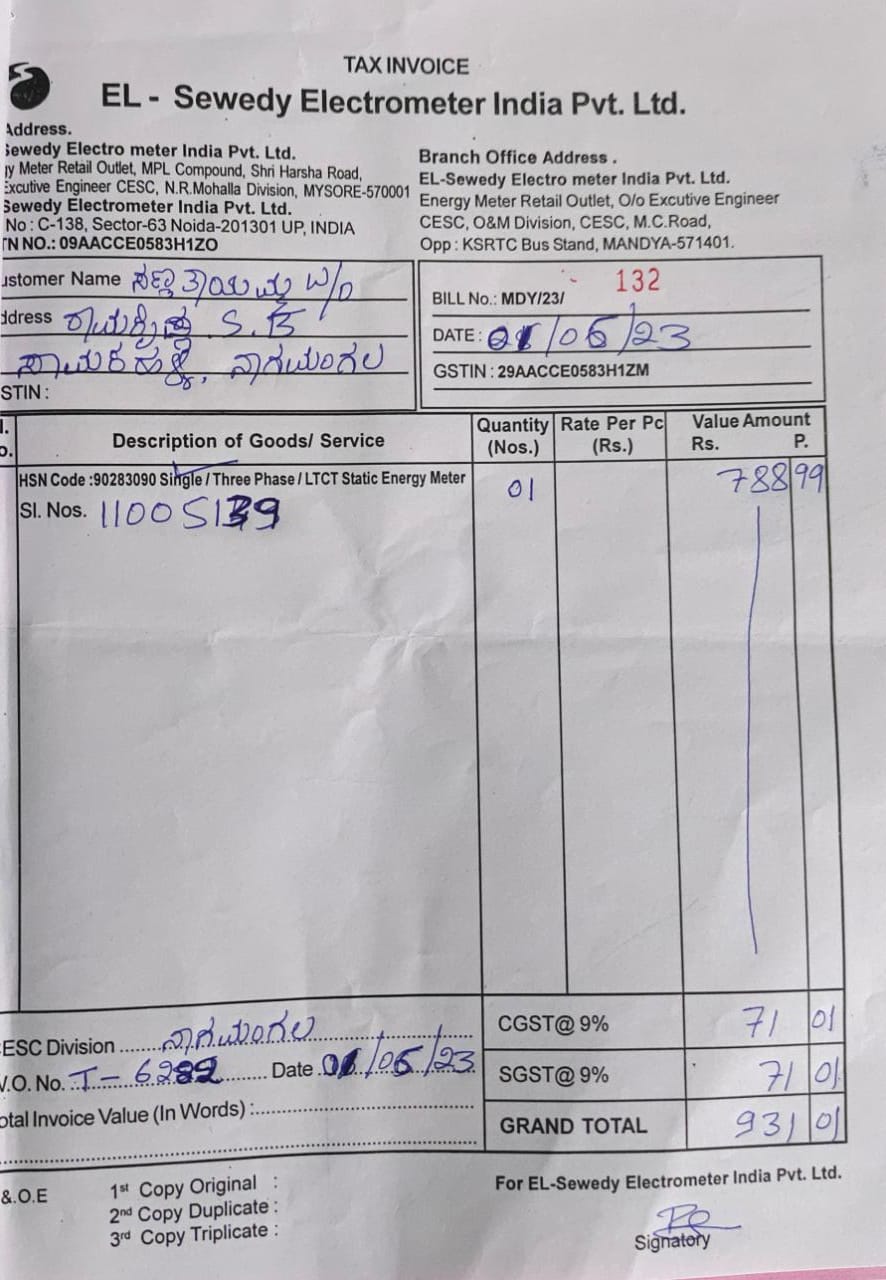 TAX INVOICE
EL - Sewedy Electrometer India Pvt. Ltd.
Address.
Sewedy Electro meter India Pvt. Ltd.
gy Meter Retail Outlet, MPL Compound, Shri Harsha Road,
Excutive Engineer CESC, N.R.Mohalla Division, MYSORE-570001
Sewedy Electrometer India Pvt. Ltd.
No : C-138, Sector-63 Noida-201301 UP, INDIA
TN NO.: 09AACCE0583H1ZO
Branch Office Address .
EL-Sewedy Electro meter India Pvt. Ltd.
Energy Meter Retail Outlet, O/o Excutive Engineer
CESC, O&M Division, CESC, M.C.Road,
Opp : KSRTC Bus Stand, MANDYA-571401.
ustomer Name ಸಣ್ಣತಾಯಮ್ಮ W/o
ddress S.B
ನಾಗಮಂಗಲ
STIN :
BILL No.: MDY/23/ 132
DATE : 01/06/23
GSTIN : 29AACCE0583H1ZM
l. Description of Goods/ Service Quantity Rate Per Pc Value Amount
o. (Nos.) (Rs.) Rs. P.
HSN Code :90283090 Single / Three Phase / LTCT Static Energy Meter 01 788 99
Sl. Nos. 11005139
CESC Division ನಾಗಮಂಗಲ
V.O. No. T-6282 Date 01/06/23
otal Invoice Value (In Words) :
CGST@ 9% 71 01
SGST@ 9% 71 01
GRAND TOTAL 931 01
&.O.E
1st Copy Original :
2nd Copy Duplicate :
3rd Copy Triplicate :
For EL-Sewedy Electrometer India Pvt. Ltd.
Signatory